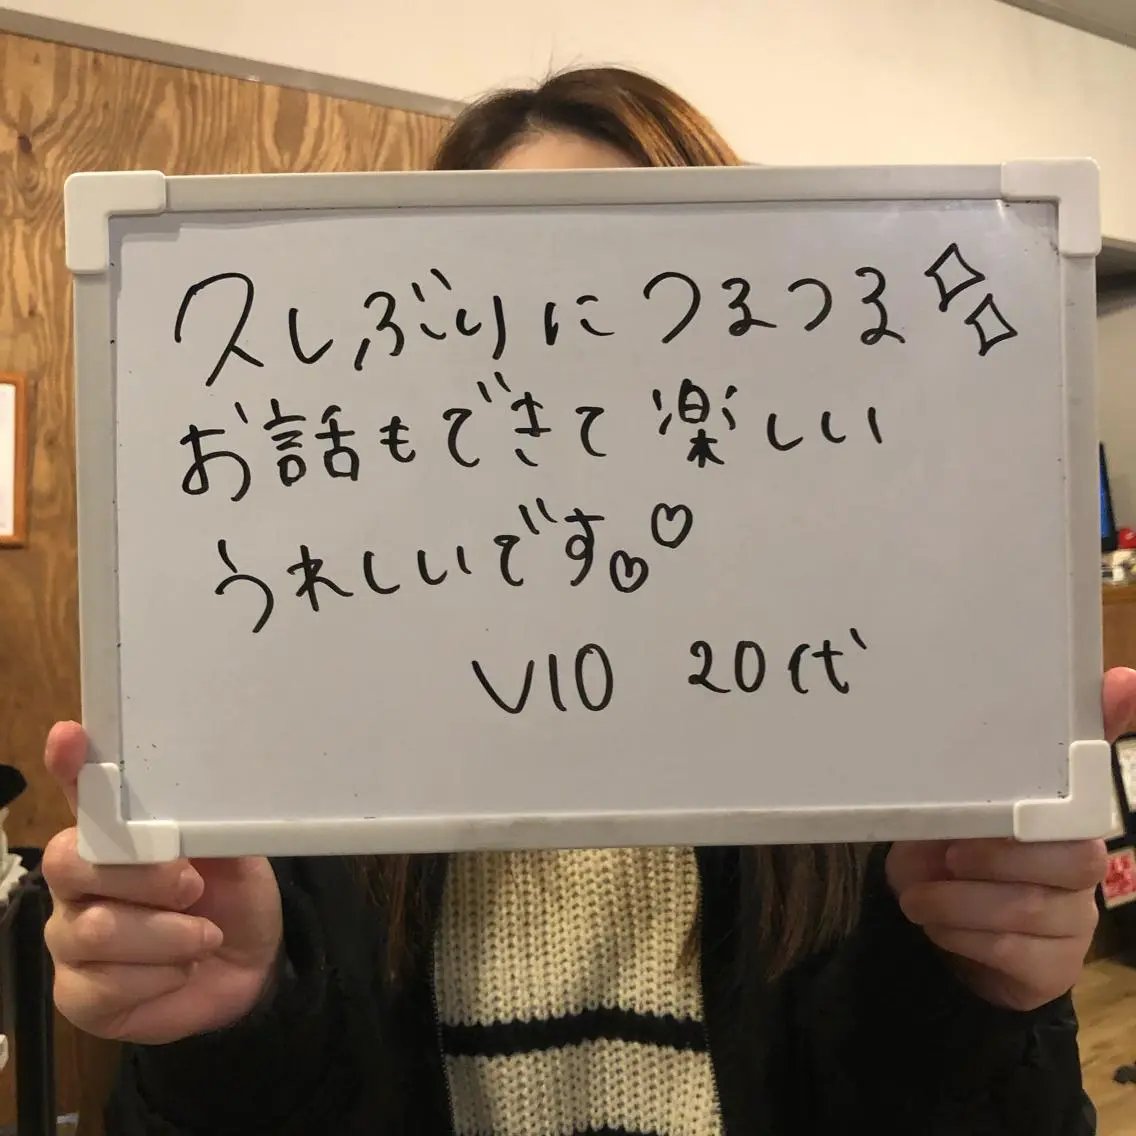 久しぶりにつるつる
お話もできて楽しい
うれしいです♡♡
VIO 20代